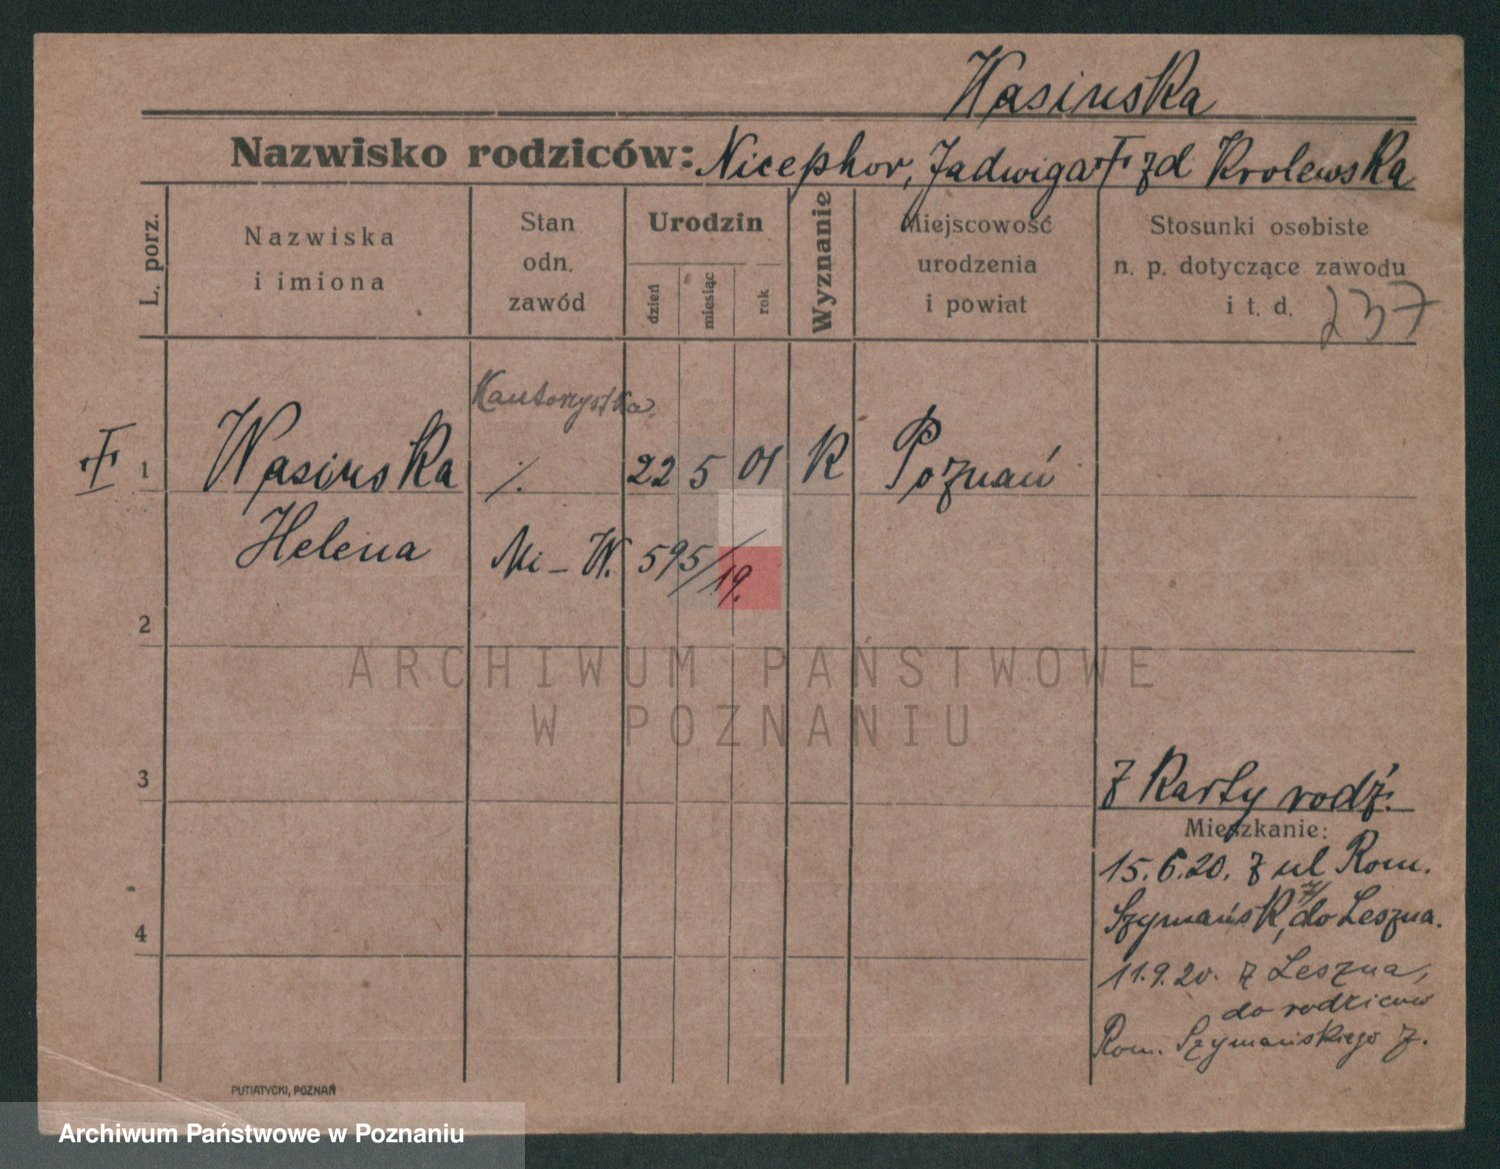 Wasinska
Nazwisko rodziców: Nicephor, Jadwiga zd Krolewska
L. porz.
Nazwiska
i imiona
Stan
odn.
zawód
Urodzin
dzień
miesiąc
rok
Wyznanie
Miejscowość
urodzenia
i powiat
Stosunki osobiste
n. p. dotyczące zawodu
i t. d.
237
Kantorzystka
1 Wasinska ·/. 22 5 01 K Poznań
Helena Mi – W. 595/19.
2
ARCHIWUM PAŃSTWOWE
W POZNANIU
3
z Karty rodz.
Mieszkanie:
15.6.20. z ul Rom.
Szymańsk, 7/ do Leszna.
4
11.9.20. z Leszna,
do rodziców
Rom. Szymańskiego 7.
PUTIATYCKI, POZNAŃ
Archiwum Państwowe w Poznaniu